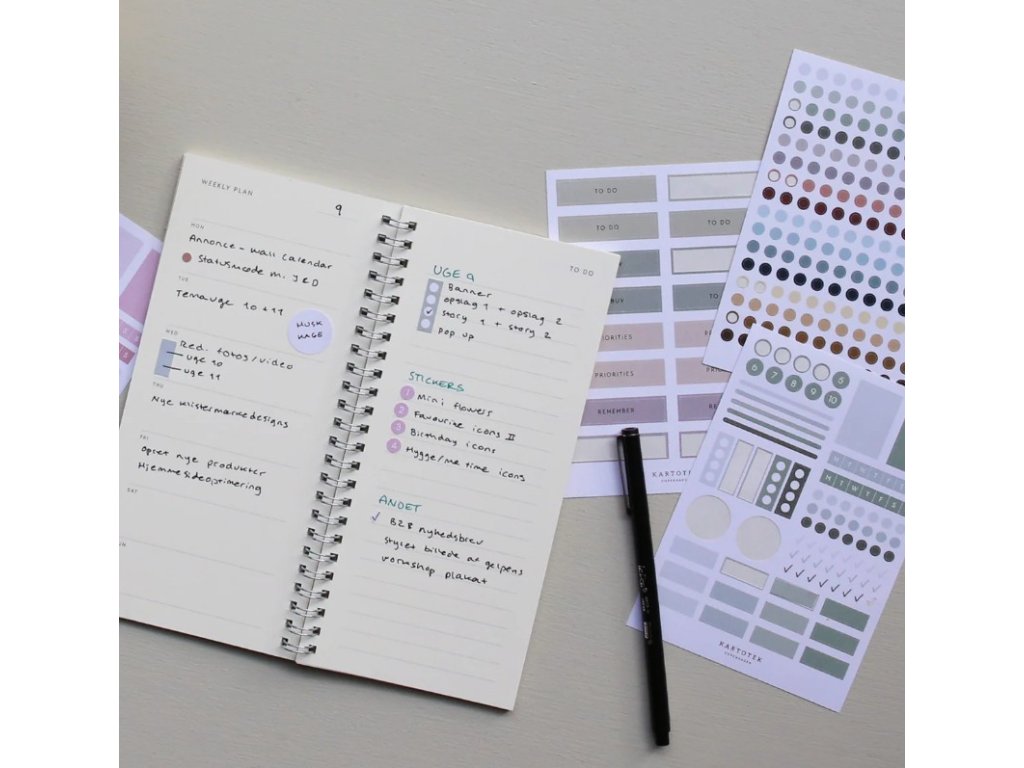 WEEKLY PLAN
9
MON
Annonce - Wall Calendar
Statusmøde m. J & D
TUE
Temauge 10 + 11
HUSK
KAGE
WED
Red. fotos/video
uge 10
uge 11
THU
Nye klistermærkedesigns
FRI
Opret nye produkter
Hjemmesideoptimering
SAT
TO DO
UGE 9
Banner
opslag 1 + opslag 2
story 1 + story 2
Pop up
STICKERS
1 Mini flowers
2 Favourite icons II
3 Birthday icons
4 Hygge/me time icons
ANDET
B2B nyhedsbrev
stylet billede af gelpens
workshop plakat
TO DO
TO DO
TO DO
BUY
PRIORITIES
PRIORITIES
REMEMBER
KARTOTEK
COPENHAGEN
5
6 7 8 9 10
M T W T F S
M T W T F S
KARTOTEK
COPENHAGEN